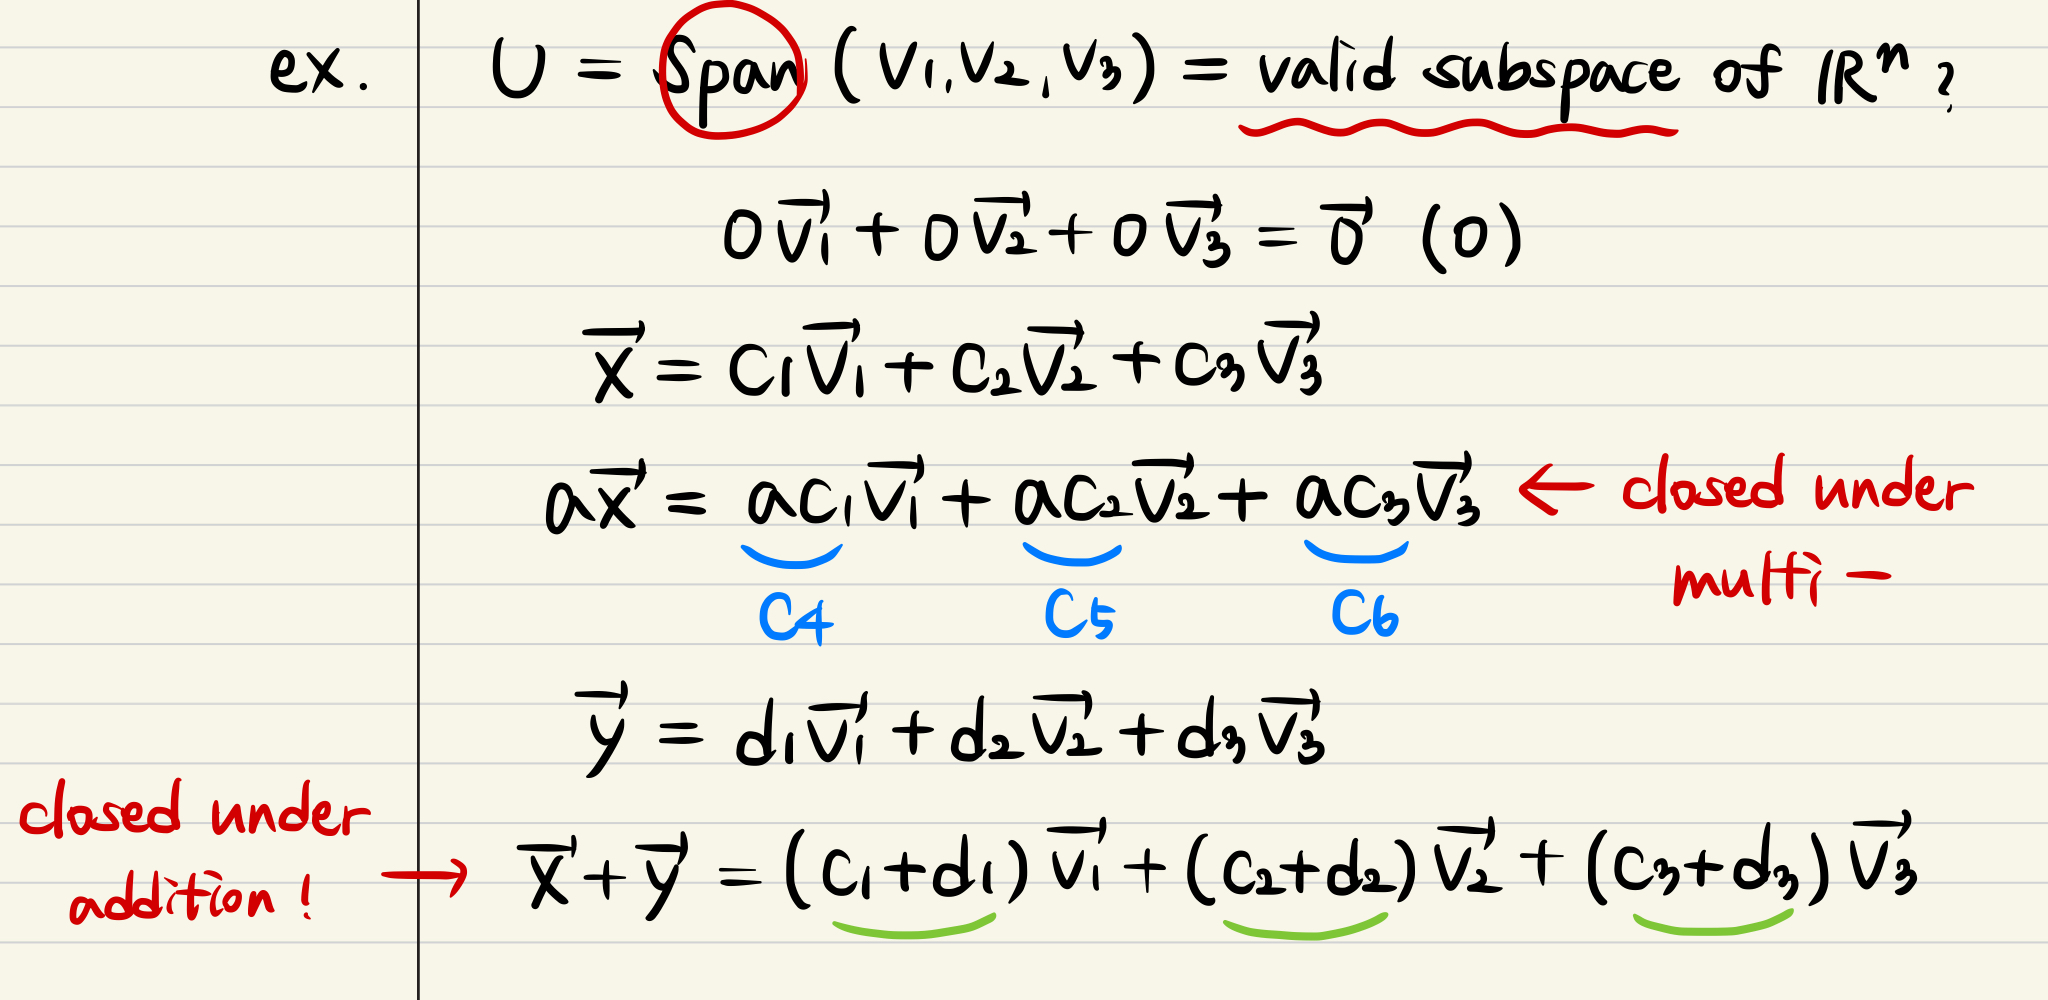 ex. U = Span (V1, V2, V3) = valid subspace of ℝⁿ?
0v⃗1 + 0v⃗2 + 0v⃗3 = 0⃗ (0)
x⃗ = c1v⃗1 + c2v⃗2 + c3v⃗3
ax⃗ = ac1v⃗1 + ac2v⃗2 + ac3v⃗3 ← closed under
multi -
C4 C5 C6
y⃗ = d1v⃗1 + d2v⃗2 + d3v⃗3
closed under
addition! → x⃗ + y⃗ = (c1+d1)v⃗1 + (c2+d2)v⃗2 + (c3+d3)v⃗3